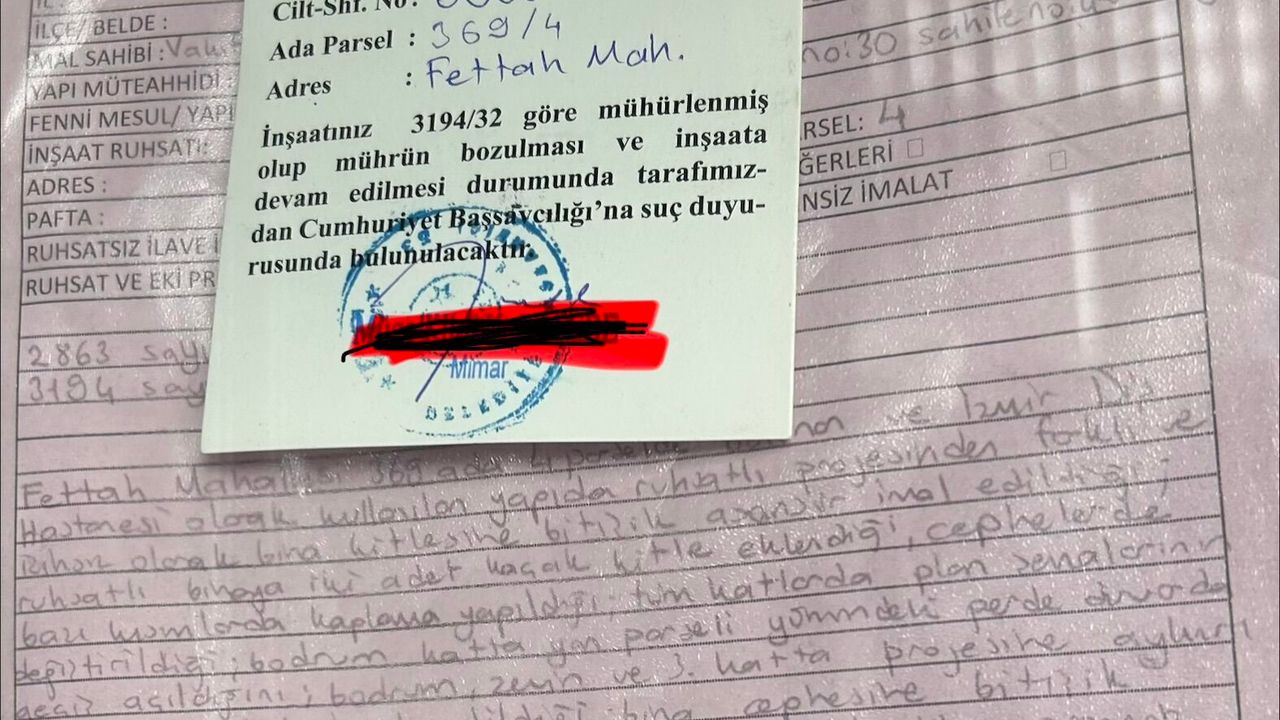 İLÇE/ BELDE :
MAL SAHİBİ :
YAPI MÜTEAHHİDİ
FENNİ MESUL/ YAPI
İNŞAAT RUHSATI:
ADRES :
PAFTA :
RUHSATSIZ İLAVE İ
RUHSAT VE EKİ PR
2863 sayı
3194 sayı
Cilt-Shf. No:
Ada Parsel : 369/4
Adres : Fettah Mah.
İnşaatınız 3194/32 göre mühürlenmiş
olup mührün bozulması ve inşaata
devam edilmesi durumunda tarafımız-
dan Cumhuriyet Başsavcılığı'na suç duyu-
rusunda bulunulacaktır.
Mimar
no:30 sahile no:
RSEL: 4
ĞERLERİ
NSİZ İMALAT
Fettah Mahallesi 369 ada 4 parselde ve İzmir Diş
Hastanesi olarak kullanılan yapıda ruhsatlı projesinden farklı ve
olarak bina kitlesine bitişik asansör imal edildiği;
ruhsatlı binaya iki adet kaçak kitle eklendiği, cephelerde
bazı kısımlarda kaplama yapıldığı, tüm katlarda plan şemalarının
değiştirildiği; bodrum katta yan parseli yönündeki perde duvarda
geçiş açıldığını; bodrum, zemin ve 3. katta projesine aykırı
bina cephesine bitişik